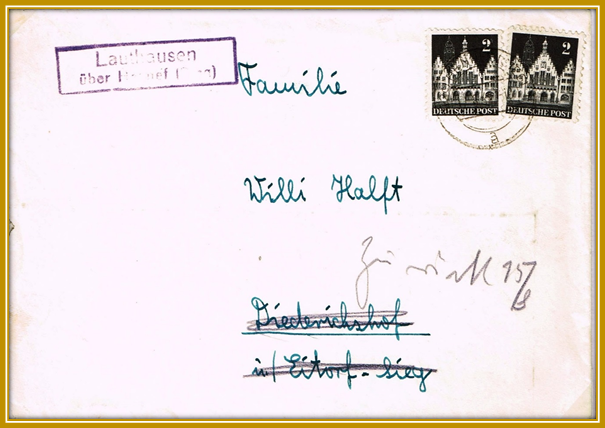 Lauthausen
über Hennef (Sieg)
2
2
DEUTSCHE POST
DEUTSCHE POST
Familie
Willi Halft
Zurück 15/8
Diederichshof
in/ Eitorf-Sieg